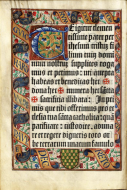 TE igitur clemen
tissime pater per
ihesum xpm fi
lium tuum domi
num nostrum supplices roga
mus et petimus: uti accepta
habeas et benedicas hec
dona hec munera hec sancta
sacrificia illibata: In pri
mis que tibi offerimus pro eccle
sia tua sancta catholica: quam
pacificare: custodire, aduna
re et regere digneris toto or
be terrarum una cum famulo